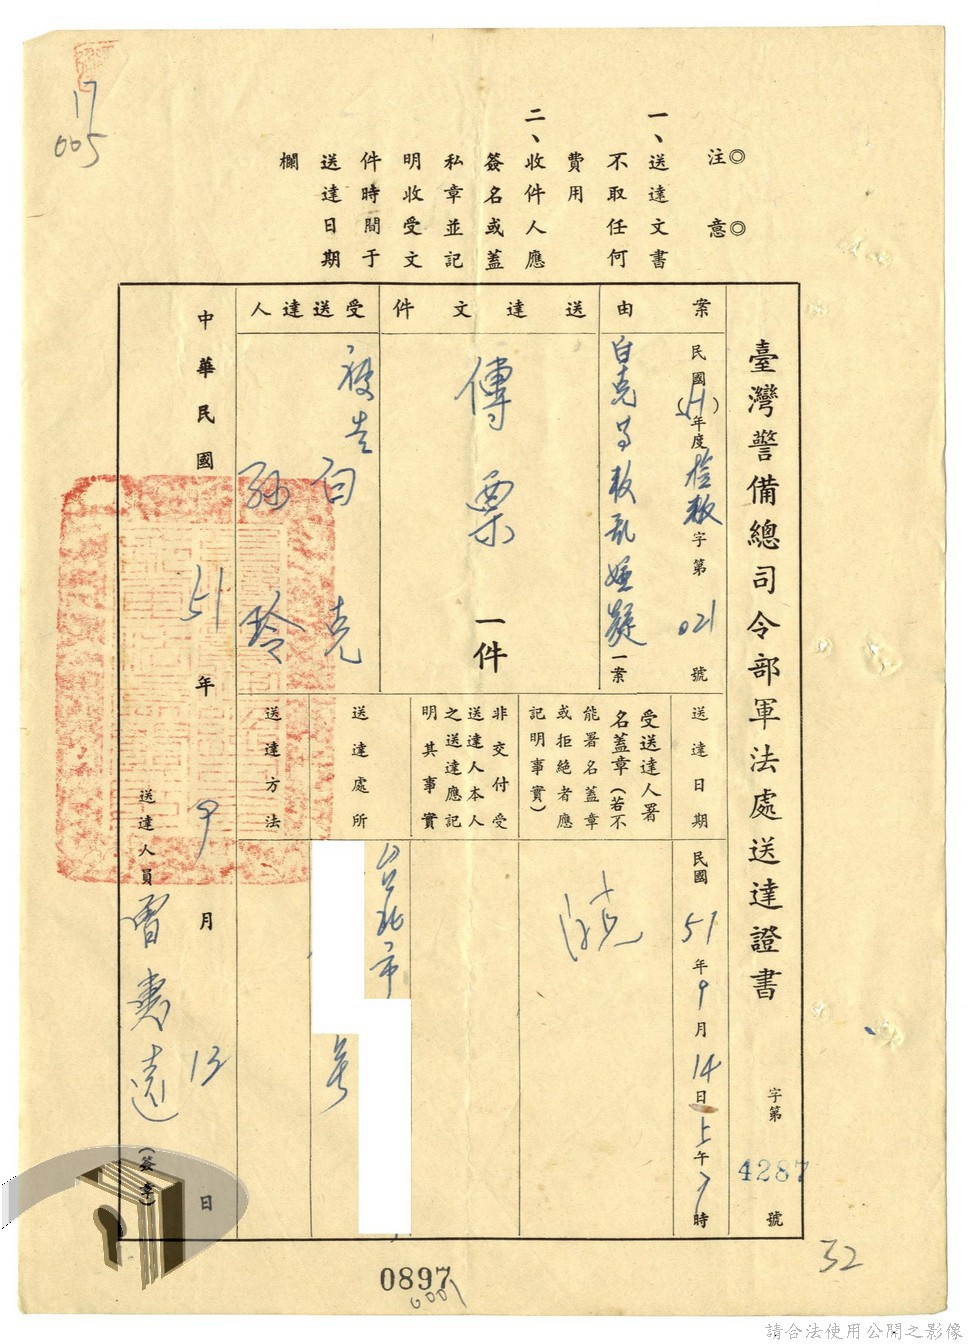 17
005
◎注意◎
一、送達文書
不取任何
費用
二、收件人應
簽名或蓋
私章並記
明收受文
件時間于
送達日期
欄
臺灣警備總司令部軍法處送達證書
字第4287號
案由
民國(51)年度 字第021號
白克等叛乱嫌疑一案
送達文件
傳票一件
受送達人
被告
白克
孫玲
送達日期
民國51年9月14日上午 時
受送達人署
名蓋章(若不
能署名蓋章
或拒絕者應
記明事實)
非交付受
送達人本人
之送達應記
明其事實
送達處所
台北市
號
送達方法
中華民國51年9月13日
送達人員
(簽章)
0897
0001
32
請合法使用公開之影像